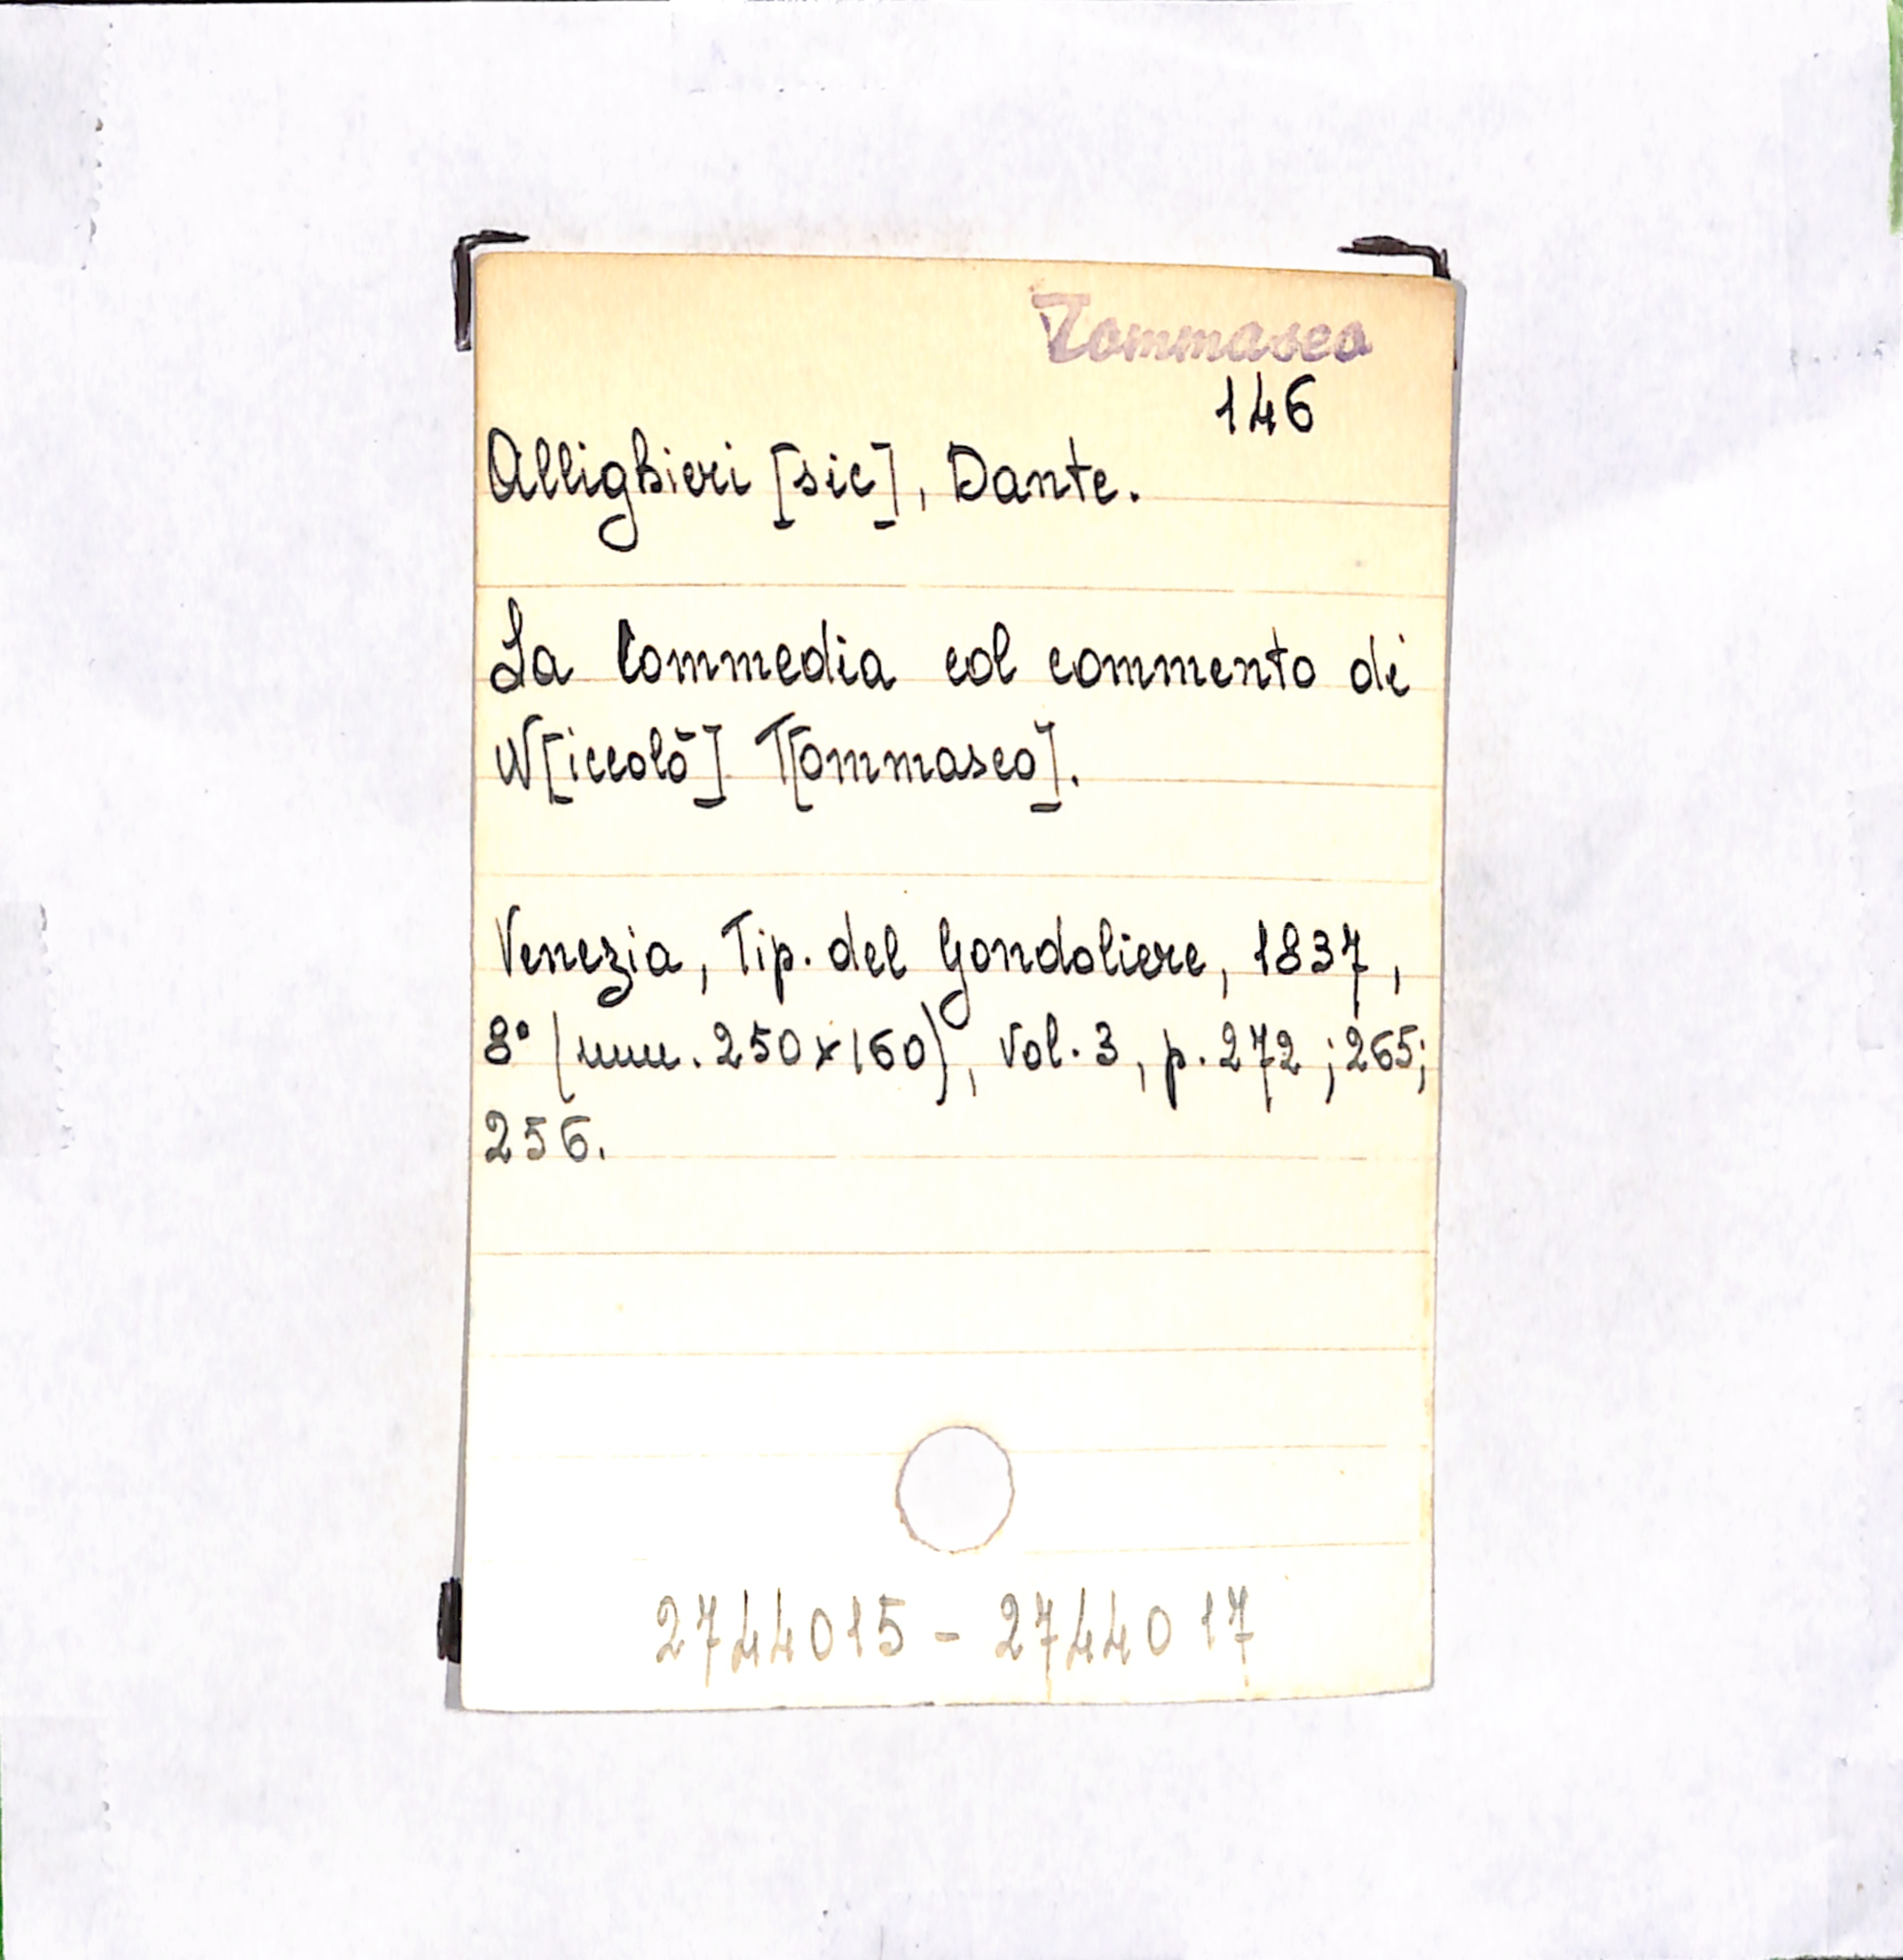 Tommaseo
146
Allighieri [sic], Dante.
La Commedia col commento di
N[iccolò] T[ommaseo].
Venezia, Tip. del Gondoliere, 1837,
8° (mm. 250x160), vol. 3, p. 272; 265;
256.
2744015 - 2744017